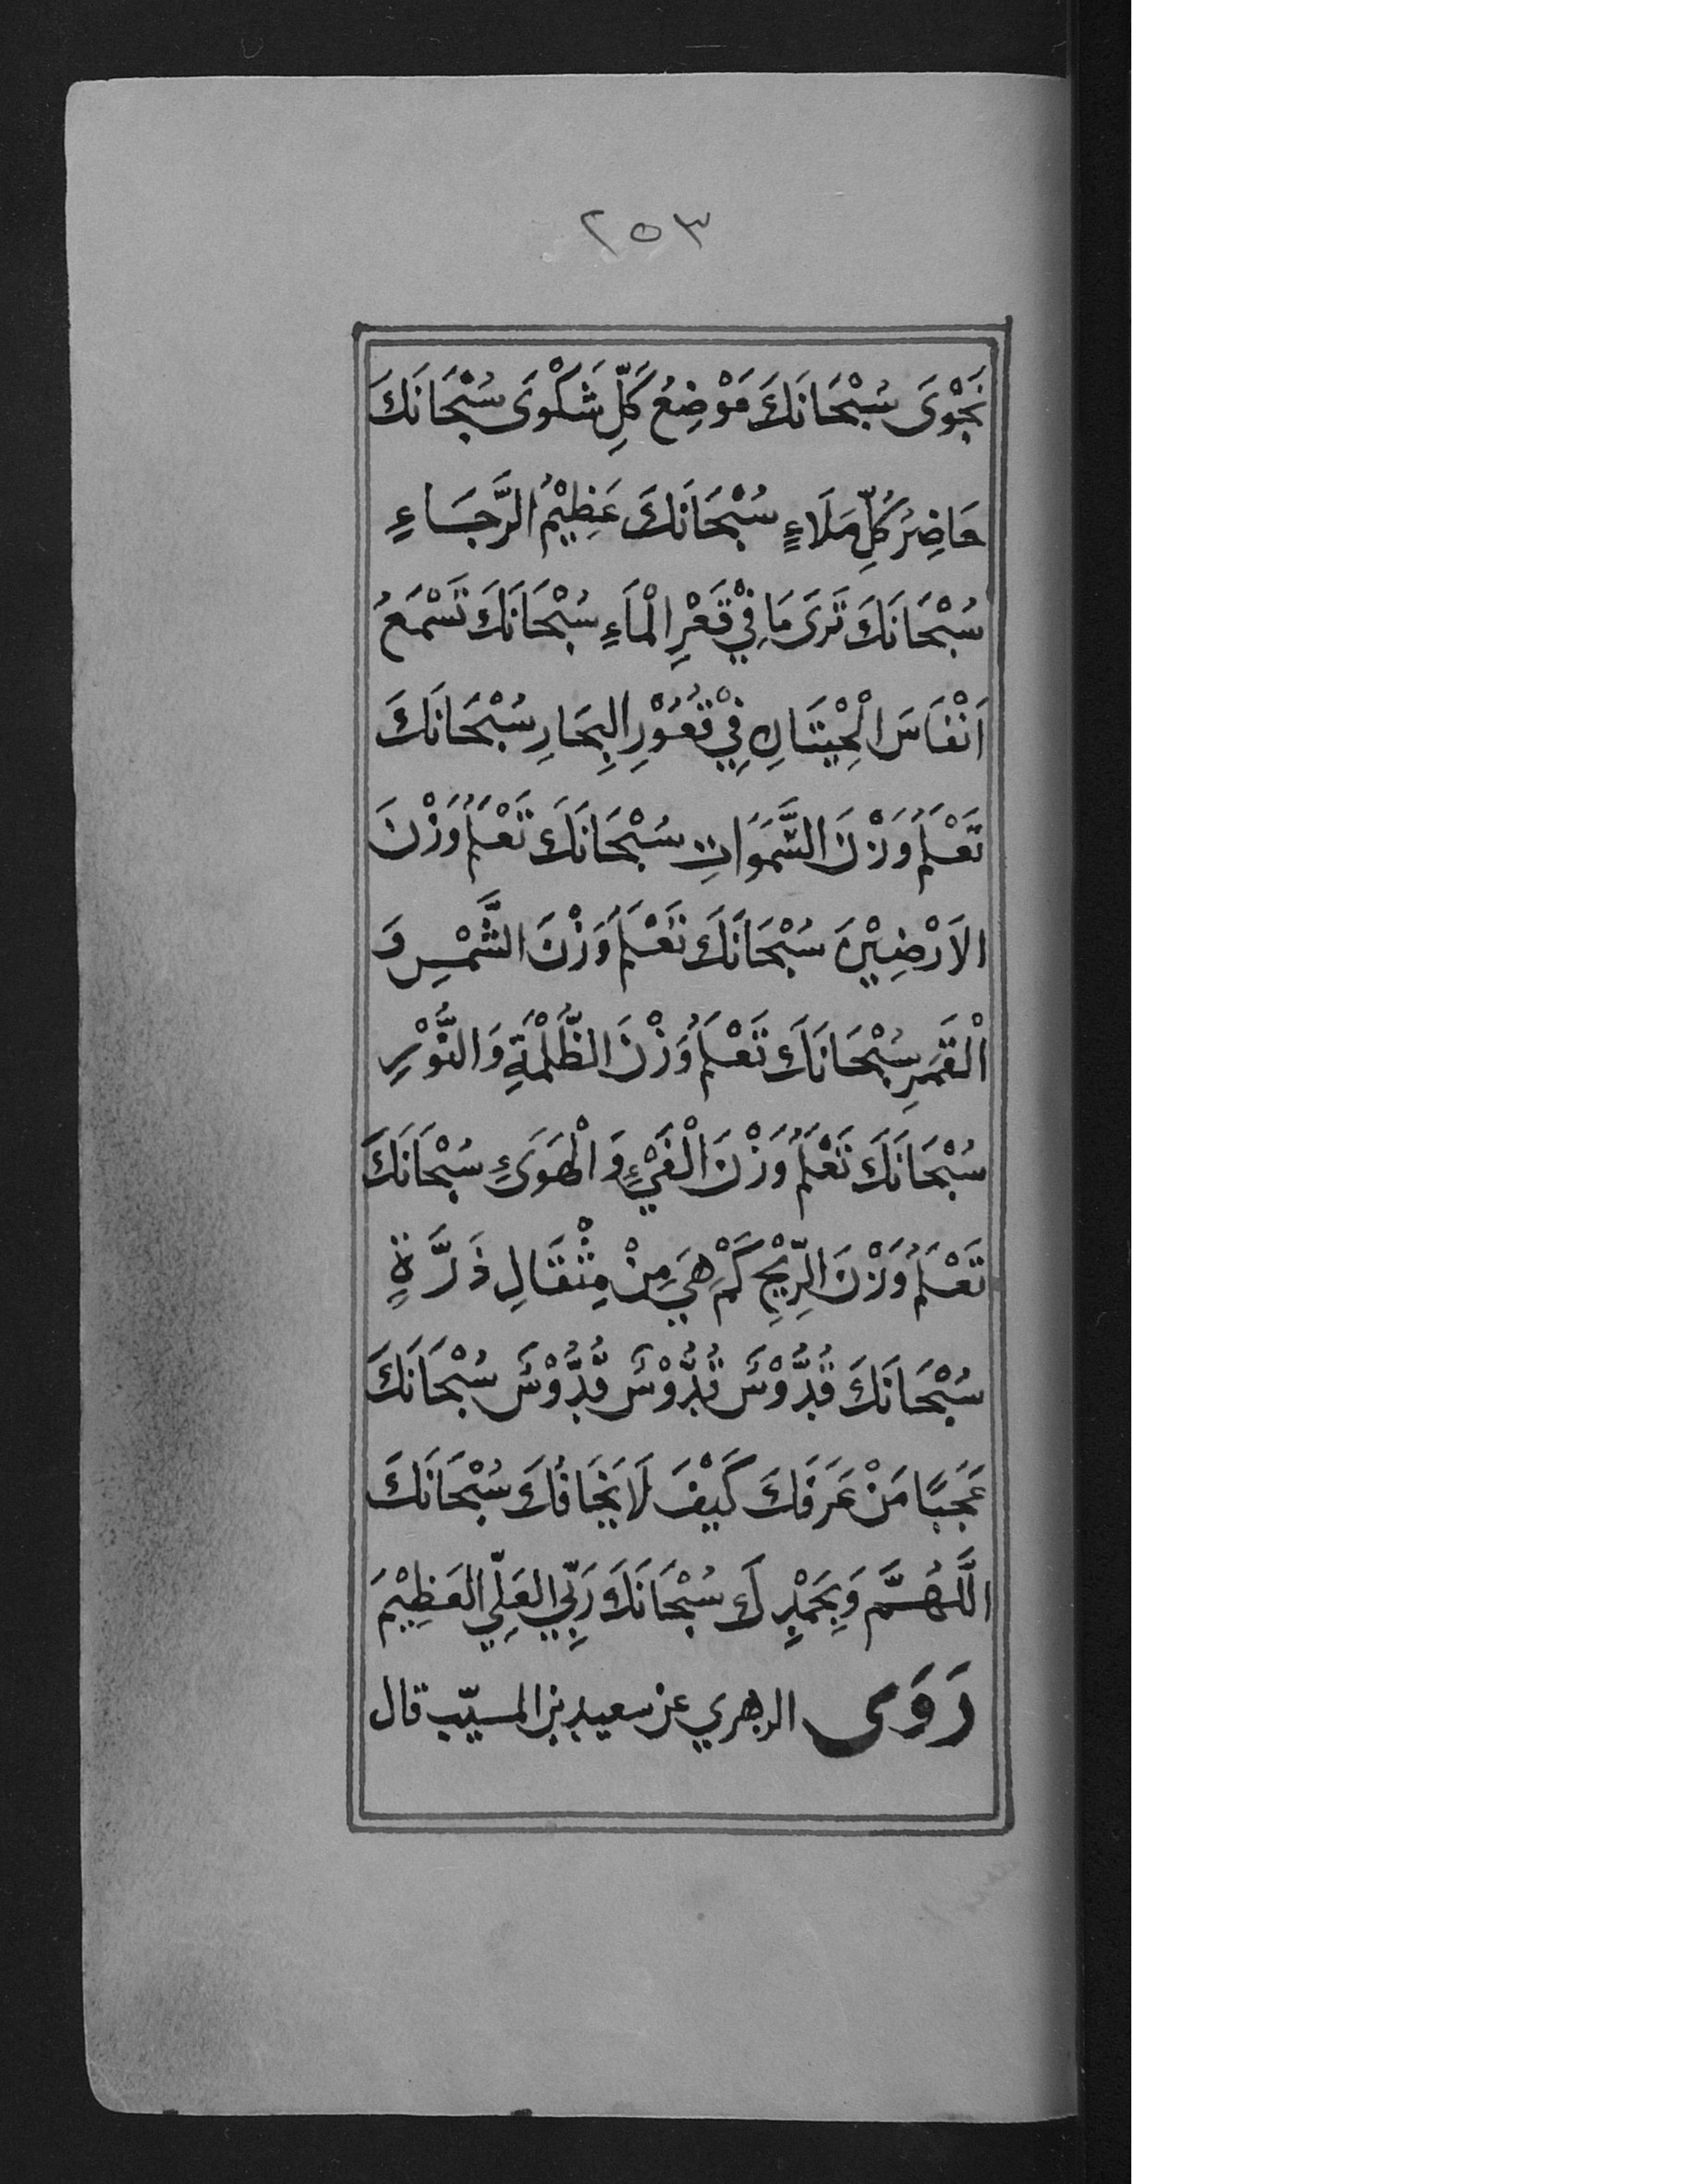 ٢٥٣
نَجْوَى سُبْحَانَكَ مَوْضِعُ كُلِّ شَكْوَى سُبْحَانَكَ
حَاضِرُ كُلِّ مَلَاءٍ سُبْحَانَكَ عَظِيْمُ الرَّجَاءِ
سُبْحَانَكَ تَرَى مَا فِيْ قَعْرِ الْمَاءِ سُبْحَانَكَ تَسْمَعُ
اَنْفَاسَ الْحِيْتَانِ فِيْ قُعُوْرِ البِحَارِ سُبْحَانَكَ
تَعْلَمُ وَزْنَ السَّمَوَاتِ سُبْحَانَكَ تَعْلَمُ وَزْنَ
الاَرْضِيْنَ سُبْحَانَكَ تَعْلَمُ وَزْنَ الشَّمْسِ وَ
الْقَمَرِ سُبْحَانَكَ تَعْلَمُ وَزْنَ الظُّلْمَةِ وَالنُّوْرِ
سُبْحَانَكَ تَعْلَمُ وَزْنَ الْفَيْءِ وَالْهَوَىءِ سُبْحَانَكَ
تَعْلَمُ وَزْنَ الرِّيْحِ كَمْ هِيَ مِنْ مِثْقَالِ ذَرَّةٍ
سُبْحَانَكَ قُدُّوْسٌ قُدُّوْسٌ قُدُّوْسٌ سُبْحَانَكَ
عَجَبًا مَنْ عَرَفَكَ كَيْفَ لَا يَخَافُكَ سُبْحَانَكَ
اللَّهُمَّ وَبِحَمْدِكَ سُبْحَانَكَ رَبِّيَ العَلِّي العَظِيْمَ
رَوَى الزهري عن سعيد بن المسيّب قال